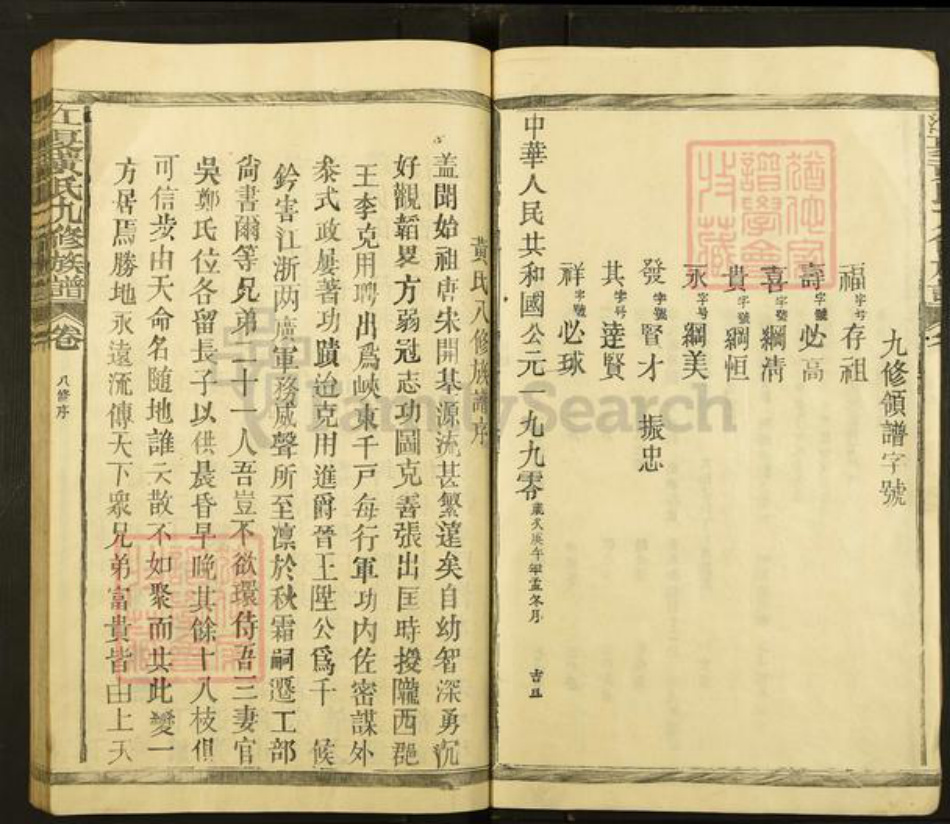 九修領譜字號
福字号 存祖
壽字號 必高
喜字號 綱清
貴字號 綱恒
永字号 綱美
發字號 賢才 振忠
其字号 達賢
祥字號 必球
中華人民共和國公元一九九零歲次庚午年孟冬月 吉旦
黃氏八修族譜序
盖聞始祖唐宋開基源流甚繁達矣自幼智深勇沉
好觀韜畧方弱冠志功圖克善張出匡時授隴西郡
王李克用聘出爲峽東千戸每行軍功内佐密謀外
叅式政屢著功蹟迨克用進爵晉王陞公爲千 候
鈐害江浙两廣軍務威聲所至凛於秋霜嗣遷工部
尙書爾等兄弟二十一人吾豈不欲環侍吾三妻官
吳鄭氏位各留長子以供晨昏早晚其餘十八枝俱
可信步由天命名随地誰云散不如聚而共此變一
方居焉勝地永遠流傳天下衆兄弟富貴皆由上天
江夏黃氏九修族譜 卷 八修序
FamilySearch